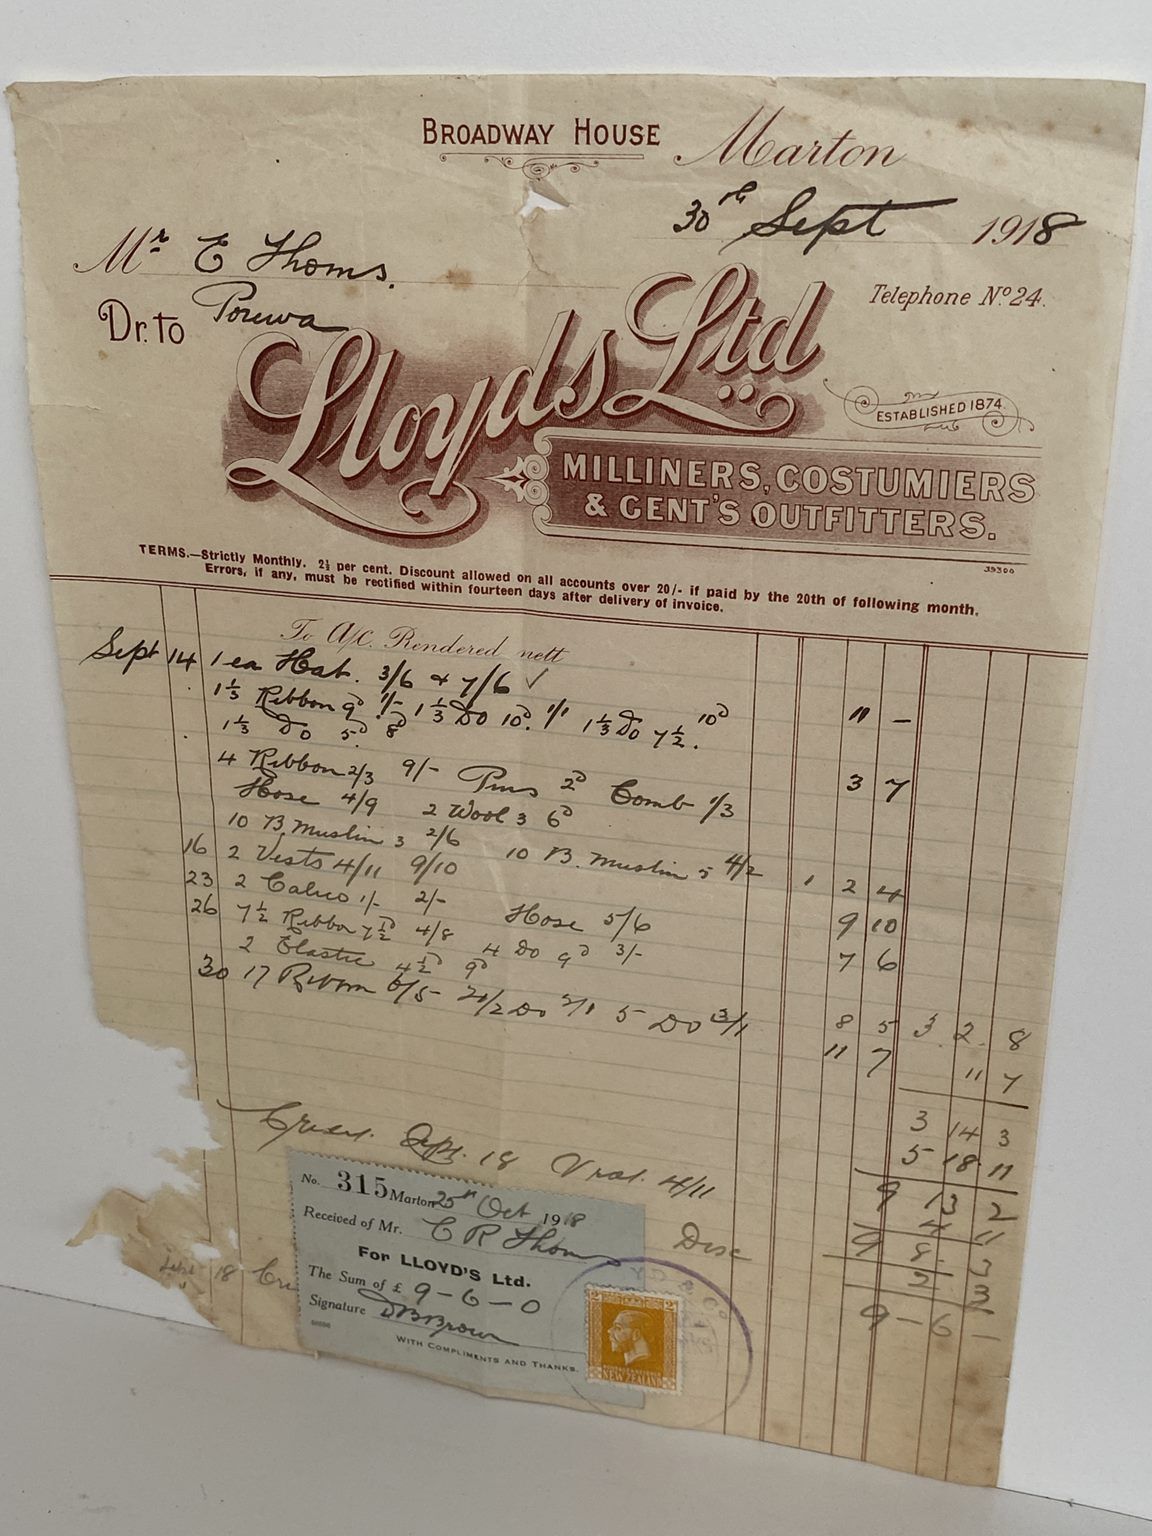 BROADWAY HOUSE Marton
30th Sept 1918
Mr E Thoms.
Porewa
Telephone No. 24.
Dr. to
Lloyds Ltd
ESTABLISHED 1874.
MILLINERS, COSTUMIERS
& GENT'S OUTFITTERS.
39300
TERMS.—Strictly Monthly. 2½ per cent. Discount allowed on all accounts over 20/- if paid by the 20th of following month.
Errors, if any, must be rectified within fourteen days after delivery of invoice.
To A/C. Rendered nett
Sept 14 1 ea Hat. 3/6 & 7/6 ✓ 11 —
1⅓ Ribbon 9d 1/- 1⅓ Do 10d. 1/1 1⅓ Do 7½. 10d
1⅓ Do 5d 8d 3 7
4 Ribbon 2/3 9/- Pins 2d Comb 1/3
Hose 4/9 2 Wool 3 6d
10 B. Muslin 3 2/6 10 B. Muslin 5 4/2 1 2 4
16 2 Vests 4/11 9/10 9 10
23 2 Calico 1/- 2/- Hose 5/6 7 6
26 7½ Ribbon 7½d 4/8 4 Do 9d 3/-
2 Elastic 4½d 9d 8 5 3. 2. 8
30 17 Ribbon 6/5 2/1 5 Do 3/1 11 7 11 7
3 14 3
5 18 11
18 4/11 9 13 2
4 11
Disc 9 8 3
2 3
9 - 6 -
18
No. 315 Marton 25th Oct 1918
Received of Mr. C R Thoms
For LLOYD'S Ltd.
The Sum of £ 9-6-0
Signature DB Brown
WITH COMPLIMENTS AND THANKS.
NEW ZEALAND